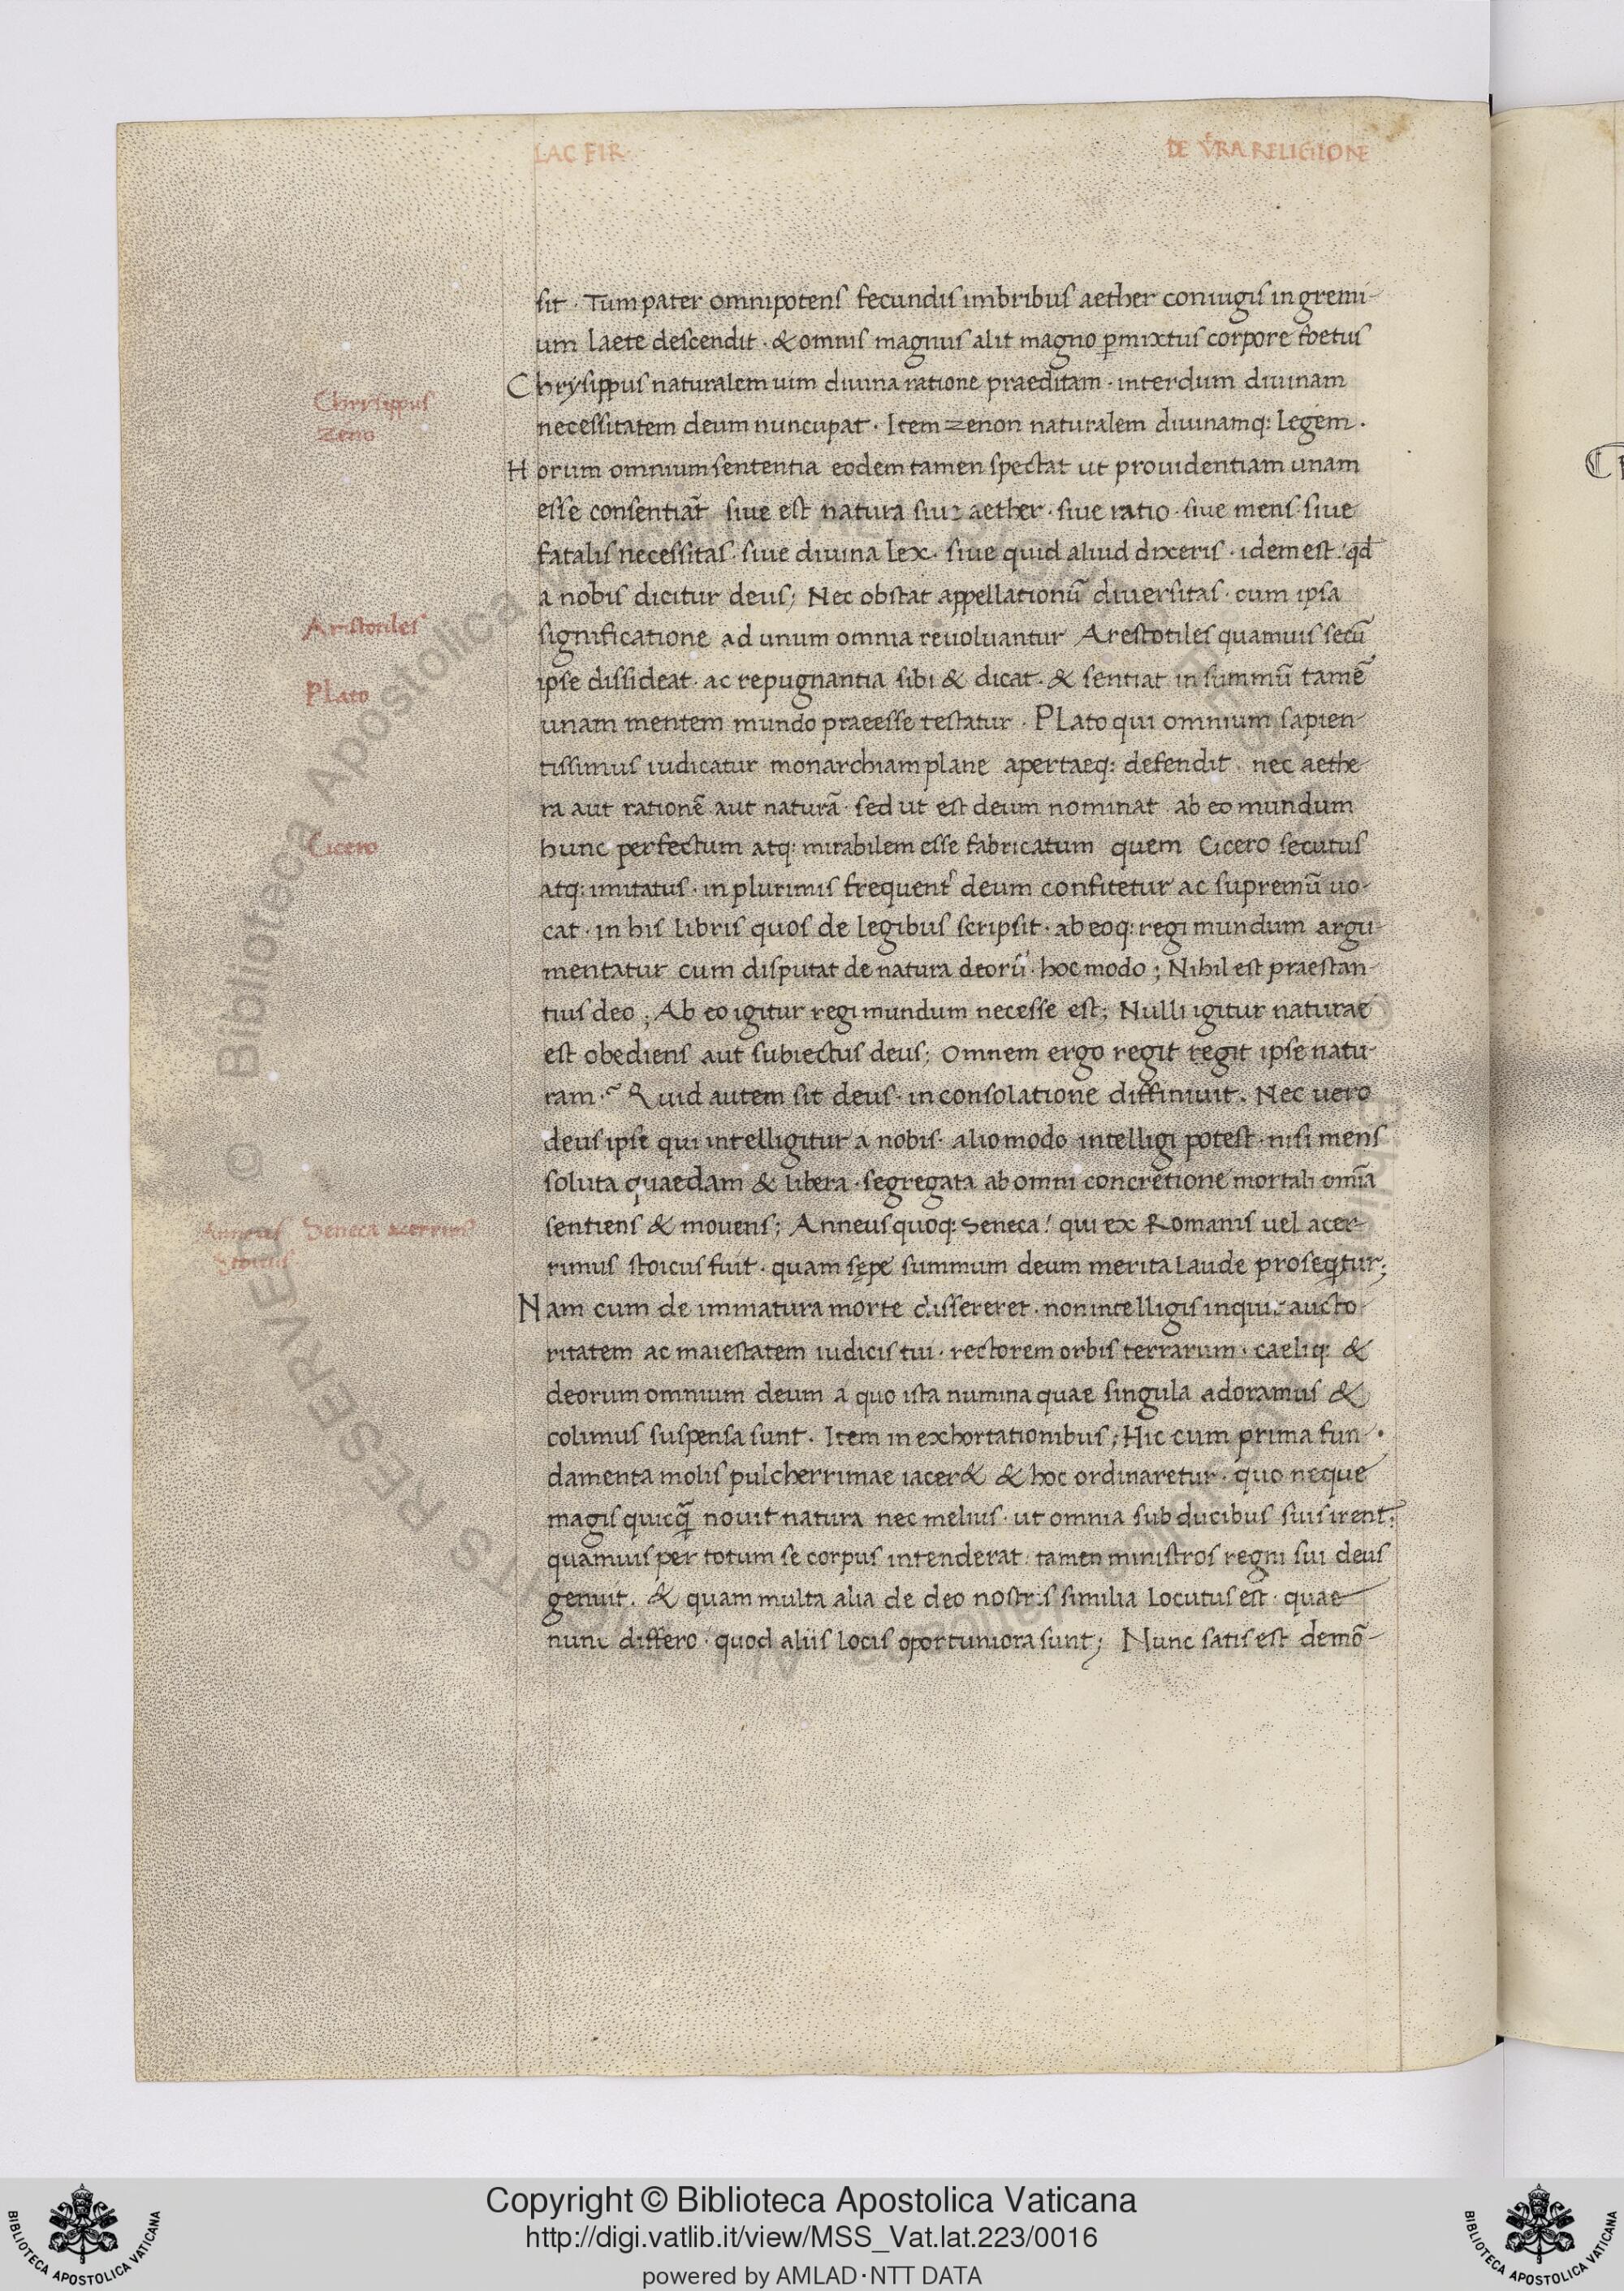 LAC FIR
DE V̄RA RELIGIONE
sit · Tum pater omnipotens fecundis imbribus aether coniugis in gremi-
um laete descendit · & omnis magnus alit magno ꝑmixtus corpore foetus
Chrysippus
Zeno
Chrysippus naturalem uim diuina ratione praeditam · interdum diuinam
necessitatem deum nuncupat · Item zenon naturalem diuinamq: legem ·
Horum omnium sententia eodem tamen spectat ut prouidentiam unam
esse consentiāt siue est natura siue aether · siue ratio · siue mens · siue
fatalis necessitas · siue diuina lex · siue quid aliud dixeris · idem est · qd̄
a nobis dicitur deus; Nec obstat appellationū diuersitas · cum ipsa
Aristotiles
significatione ad unum omnia reuoluantur Arestotiles quamuis secū
Plato
ipse dissideat · ac repugnantia sibi & dicat · & sentiat in summū tamē
unam mentem mundo praeesse testatur · Plato qui omnium sapien-
tissimus iudicatur monarchiam plane apertaeq: defendit · nec aethe-
ra aut rationē aut naturā · sed ut est deum nominat · ab eo mundum
Cicero
hunc perfectum atq: mirabilem esse fabricatum quem Cicero secutus
atq: imitatus · in plurimis frequent͛ deum confitetur ac supremū uo-
cat · in his libris quos de legibus scripsit · ab eoq: regi mundum argu-
mentatur cum disputat de natura deorū · hoc modo ; Nihil est praestan-
tius deo ; Ab eo igitur regi mundum necesse est; Nulli igitur naturae
est obediens aut subiectus deus; Omnem ergo regit regit ipse natu-
ram · Quid autem sit deus · in consolatione diffiniuit . Nec uero
deus ipse qui intelligitur a nobis · alio modo intelligi potest · nisi mens
soluta quaedam & libera · segregata ab omni concretione mortali omīa
Anneus Seneca acerrimus
Stoicus
sentiens & mouens; Anneus quoq: Seneca! qui ex Romanis uel acer-
rimus stoicus fuit · quam sępe summum deum merita laude proseqtur;
Nam cum de immatura morte dissereret · non intelligis inquit aucto-
ritatem ac maiestatem iudicis tui · rectorem orbis terrarum · caeliq: &
deorum omnium deum a quo ista numina quae singula adoramus &
colimus suspensa sunt · Item in exhortationibus ; Hic cum prima fun-
damenta molis pulcherrimae iacer& & hoc ordinaretur · quo neque
magis quicq̄ nouit natura nec melius · ut omnia sub ducibus suis irent:
quamuis per totum se corpus intenderat · tamen ministros regni sui deus
genuit . & quam multa alia de deo nostris similia locutus est · quae
nunc differo · quod aliis locis oportuniora sunt; Nunc satis est demō-
© Biblioteca Apostolica Vaticana ALL RIGHTS RESERVED
Copyright © Biblioteca Apostolica Vaticana
http://digi.vatlib.it/view/MSS_Vat.lat.223/0016
powered by AMLAD·NTT DATA
BIBLIOTECA APOSTOLICA VATICANA
BIBLIOTECA APOSTOLICA VATICANA